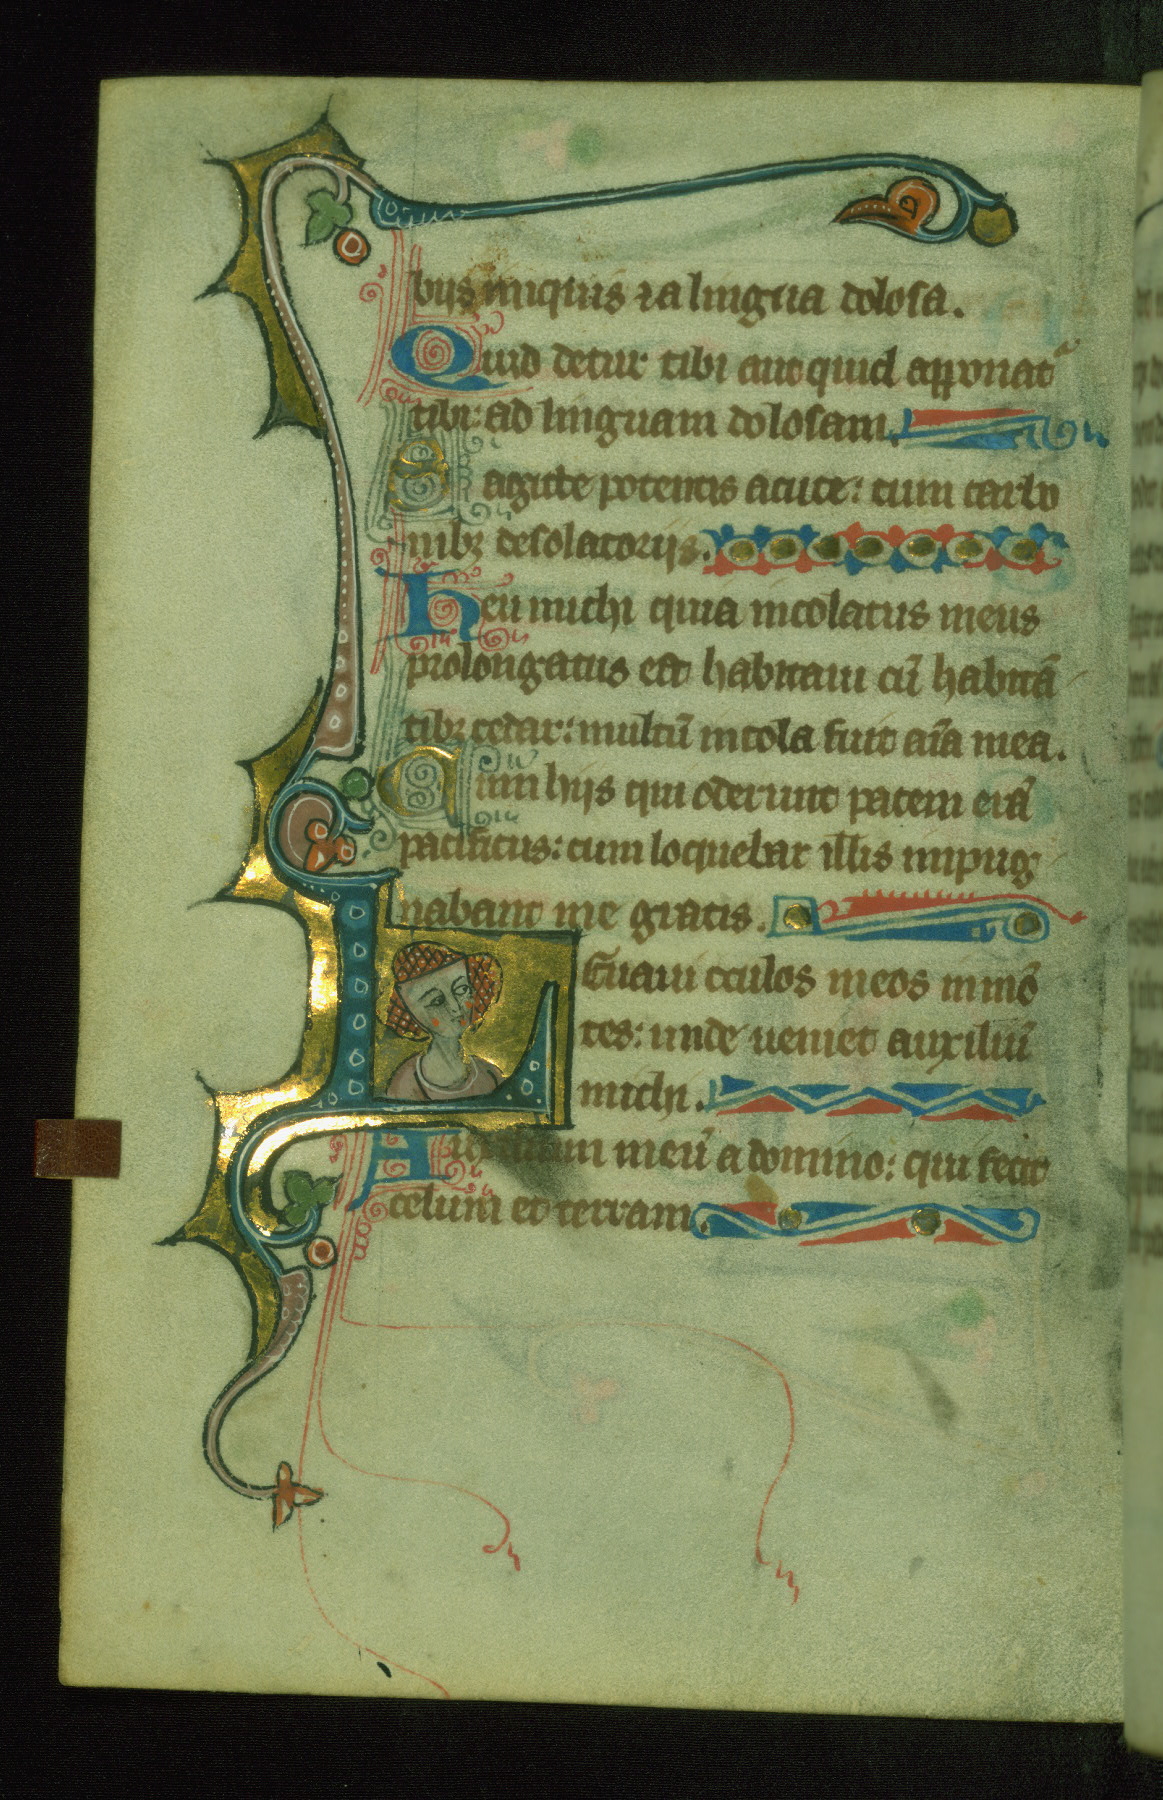 bijs iniquis ⁊ a lingua dolosa.
Quid detur tibi aut quid apponat᷑
tibi: ad linguam dolosam.
Sagitte potentis acute: cum carbo
nibꝫ desolatorijs.
Heu michi quia incolatus meus
prolongatus est habitaui cū habitā
tibꝫ cedar: multū incola fuit aīa mea.
Cum hijs qui oderunt pacem erā
pacificus: cum loquebar illis inpug
nabant me gratis.
Leuaui oculos meos in mō
tes: unde ueniet auxiliū
michi.
Auxilium meū a domino: qui fecit
celum et terram.